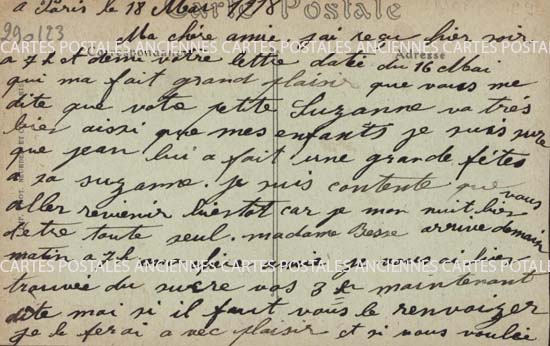 Carte Postale
a Paris le 18 Mai 1918
290123
Ma chère amie. j'ai reçu hier soir
Correspondance Adresse
a 7 h et demi votre lettre daté du 16 Mai
qui ma fait grand plaisir que vous me
dite que vote petite Suzanne va très
bien aussi que mes enfants je suis sure
que jean lui a fait une grande fêtes
a sa suzanne. je suis contente que vous
aller revienir bientot car je mon nuit bien
detre toute seul. madame Besse arrive demain
matin a 7 h
CARTES POSTALES ANCIENNES CARTES POSTALES ANCIENNES CARTES POSTALES ANCIENNES
trouvée du sucre vos 3 maintenant
dite moi si il faut vous le renvoizer
je le ferai avec plaisir et si vous voulée